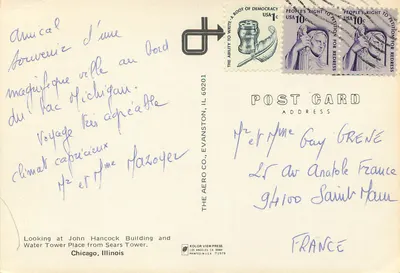 Amical
Souvenir d'une
magnifique ville au bord
du Lac Michigan.
Voyage très agréable
climat capricieux
Mr et Mme Mazoyer
Looking at John Hancock Building and
Water Tower Place from Sears Tower.
Chicago, Illinois
THE AERO CO., EVANSTON, IL 60201
A ROOT OF DEMOCRACY
THE ABILITY TO WRITE
USA 1c
PEOPLE'S RIGHT TO PETITION FOR REDRESS
USA 10c
PEOPLE'S RIGHT TO PETITION FOR REDRESS
USA 10c
POST CARD
ADDRESS
Mr et Mme Guy GRENE
25 Av Anatole France
94100 Saint Maur
FRANCE
KOLOR VIEW PRESS